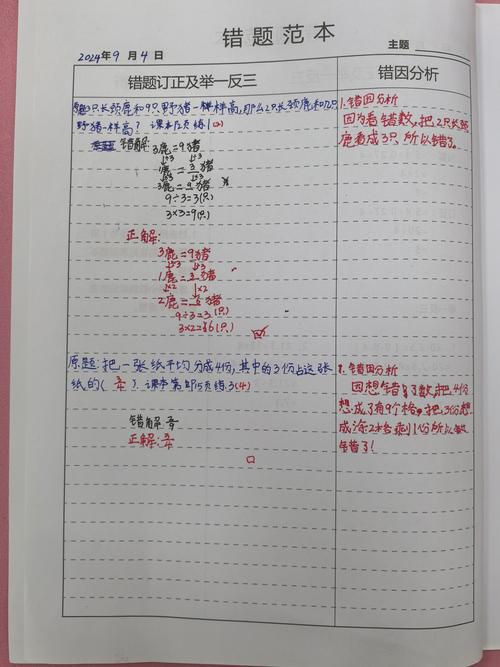 错题范本
2024年9月4日
主题
错题订正及举一反三
错因分析
3只长颈鹿和9只野猪一样高,那么2只长颈鹿和几只
野猪一样高? 课本 页练1
错解:
3鹿=9猪
↓÷3 ↓÷3
1鹿=3猪
3鹿=9猪
9÷3=3(只)
3×3=9(只)
正解:
3鹿=9猪
↓÷3 ↓÷3
1鹿=3猪
↓×2 ↓×2
2鹿=6猪
9÷3=3(只)
3×2=6(只)
1.错因分析
因为看错数,把2只长颈
鹿看成3只,所以错了。
原题:把一张纸平均分成4份,其中的3份占这张
纸的( )? 课本第 页练3(4)
错解:
正解:
错因分析
因想错了数,把4份
想成了有9个格,把3份想
成涂2格剩1份所以做
错了!